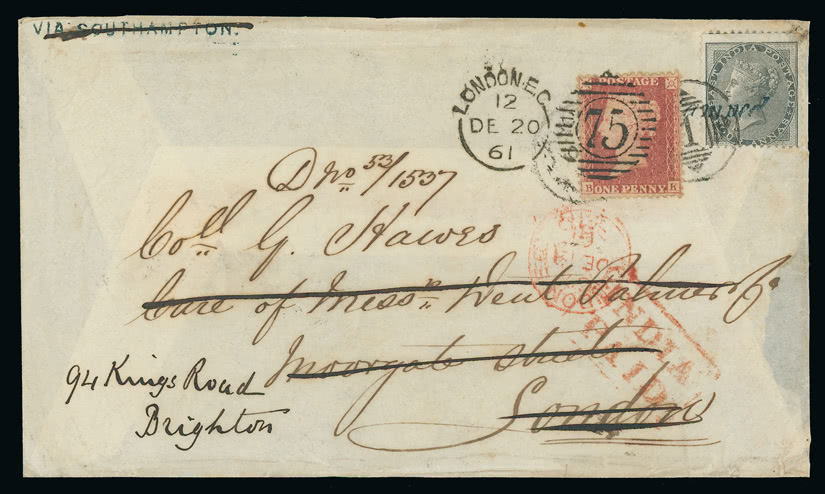 VIA SOUTHAMPTON.
LONDON·E.C
12
DE 20
61
75
POSTAGE
B ONE PENNY K
EAST INDIA POSTAGE
ANNAS
1
Dno 53/1537
Coll G. Hawes
Care of Messrs Dent Palmer & Co
Moorgate street
London
94 Kings Road
Brighton
INDIA
PAID